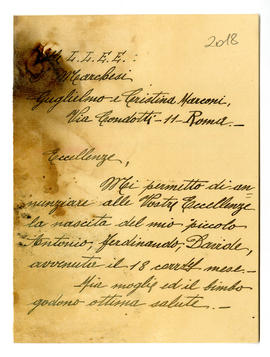 2018
L.L.E.E.:
Marchesi
Guglielmo e Cristina Marconi,
Via Condotti - 11 - Roma. -
Eccellenze,
Mi permetto di an-
nunziare alle Vostre Eccellenze
la nascita del mio piccolo
Antonio, Ferdinando, Davide,
avvenuta il 18 corr. mese. -
Mia moglie ed il bimbo
godono ottima salute. -